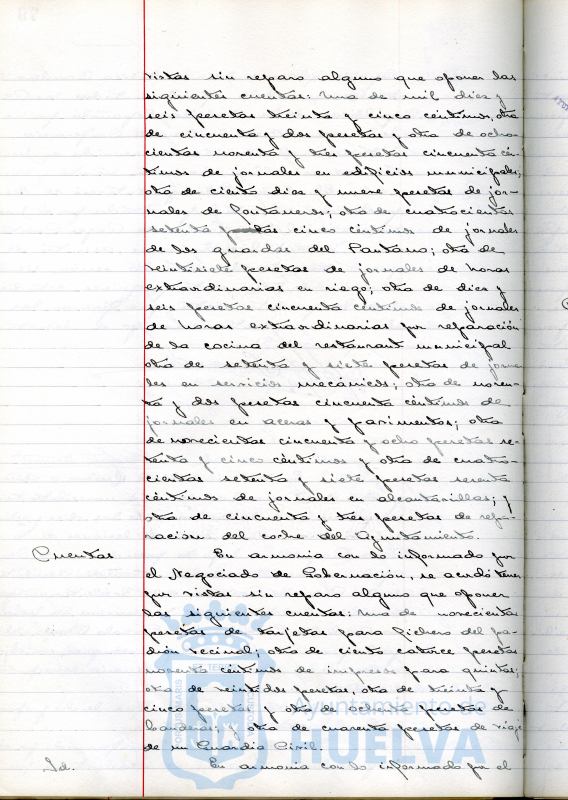 vistas sin reparo alguno que oponer las
siguientes cuentas: una de mil diez y
seis pesetas treinta y cinco céntimos, otra
de cincuenta y dos pesetas y otra de ocho-
cientas noventa y tres pesetas cincuenta cén-
timos de jornales en edificios municipales;
otra de ciento diez y nueve pesetas de jor-
nales de fontaneros; otra de cuatrocientas
setenta pesetas cinco céntimos de jornales
de los guardas del Pantano; otra de
veintisiete pesetas de jornales de horas
extraordinarias en riego; otra de diez y
seis pesetas cincuenta céntimos de jornales
de horas extraordinarias por reparación
de la cocina del restaurant municipal
otra de setenta y siete pesetas de jorna-
les en servicios mecánicos; otra de noven-
ta y dos pesetas cincuenta céntimos de
jornales en aceras y pavimentos; otra
de novecientas cincuenta y ocho pesetas se-
tenta y cinco céntimos y otra de cuatro-
cientas setenta y siete pesetas sesenta
céntimos de jornales en alcantarillas; y
otra de cincuenta y tres pesetas de repa-
ración del coche del Ayuntamiento.
Cuentas En armonia con lo informado por
el Negociado de Gobernación, se acordó tener
por vistas sin reparo alguno que oponer
las siguientes cuentas: una de novecientas
pesetas de tarjetas para fichero del pa-
drón vecinal; otra de ciento catorce pesetas
noventa céntimos de impresos para quintas;
otra de veintidós pesetas, otra de treinta y
cinco pesetas y otra de ochenta pesetas de
banderas; y otra de cuarenta pesetas de viaje
de un Guardia Civil.
Id. En armonia con lo informado por el
Ayuntamiento de
HUELVA